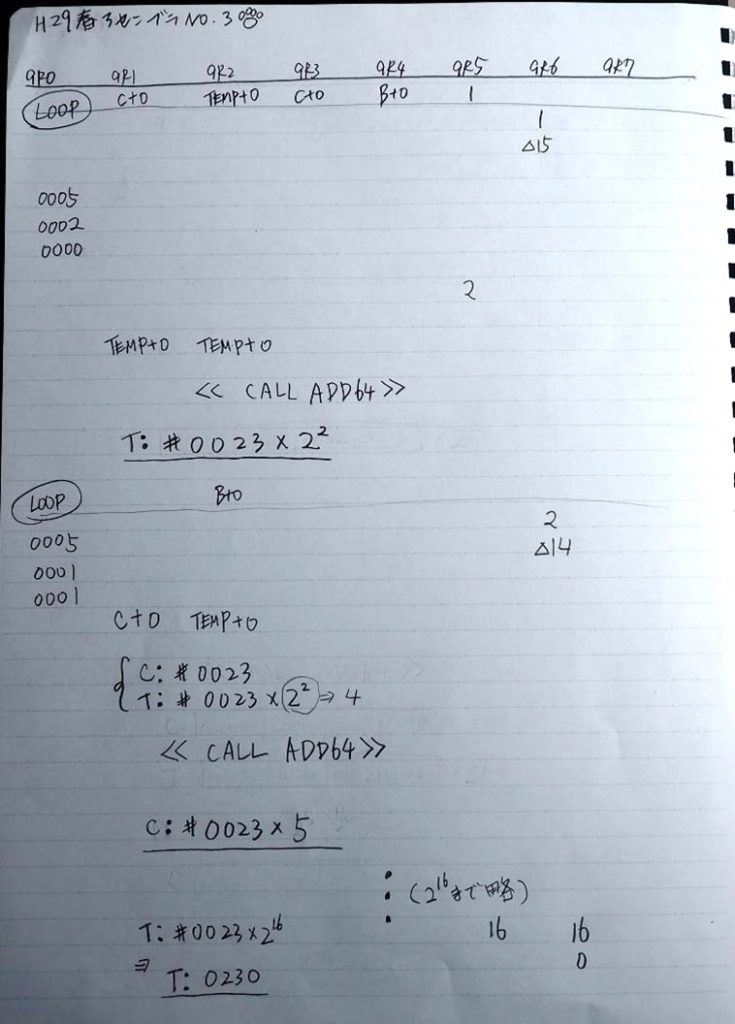 H29春アセンブラNO.3
GR0 GR1 GR2 GR3 GR4 GR5 GR6 GR7
LOOP C+0 TEMP+0 C+0 B+0 1
1
△15
0005
0002
0000
2
TEMP+0 TEMP+0
<< CALL ADD64 >>
T: #0023×2²
LOOP B+0
2
0005 △14
0001
0001
C+0 TEMP+0
C: #0023
T: #0023×2² ⇒ 4
<< CALL ADD64 >>
C: #0023×5
(2¹⁶まで略)
T: #0023×2¹⁶ 16 16
0
⇒ T: 0230